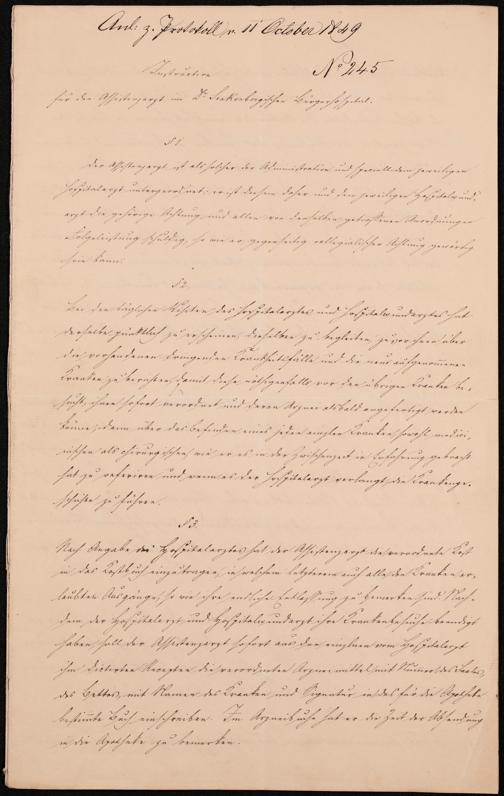 Anl: z. Protokoll v. 11 October 1849
No 245
Instruction
für den Assistenzarzt im Dr. Senkenbergischen Bürgerhospital.
§ 1.
Der Assistenzarzt ist als solcher der Administration und speciell dem jeweiligen
Hospitalarzt untergeordnet; er ist diesem daher und dem jeweiligen Hospitalwund-
arzt die gehörige Achtung und allen von denselben getroffenen Anordnungen
Folgeleistung schuldig, so wie er gegenseitig collegialischer Achtung gewärtig
sein kann.
§ 2.
Bei den täglichen Visiten des Hospitalarztes und Hospitalwundarztes hat
derselbe pünktlich zu erscheinen, dieselben zu begleiten, zuvor über
die vorhandenen dringenden Krankheitsfälle und die neu aufgenommenen
Kranken zu berichten, damit diese nöthigenfalls vor den übrigen Kranken be-
sucht, ihnen sofort verordnet und deren Arznei alsbald angefertigt werden
könne; dann über das Befinden eines jeden einzelnen Kranken sowohl medici-
nischen als chirurgischen, wie er es in der Zwischenzeit in Erfahrung gebracht
hat zu referiren und wenn es der Hospitalarzt verlangt, die Krankenge-
schichte zu führen.
§ 3.
Nach Angabe des Hospitalarztes hat der Assistenzarzt die verordnete Kost
in das Kostbuch einzutragen, in welchem letzterem auch alle den Kranken er-
laubten Ausgänge, so wie ihre endliche Entlassung zu bemerken sind. Nach-
dem der Hospitalarzt und Hospitalwundarzt ihre Krankenbesuche beendigt
haben, soll der Assistenzarzt sofort aus den einzelnen vom Hospitalarzt
ihm dictirten Recepten die verordneten Arzneimittel mit Numer des Saales,
des Bettes, mit Namen des Kranken und Signatur in das für die Apotheke
bestimmte Buch einschreiben. Im Arzneibuche hat er die Zeit der Absendung
in die Apotheke zu bemerken.